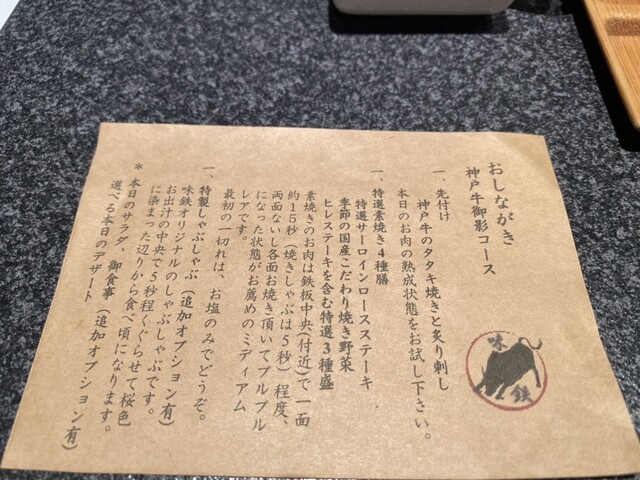 おしながき
神戸牛御影コース
一、先付け
神戸牛のタタキ焼きと炙り刺し
本日のお肉の熟成状態をお試し下さい。
一、特選素焼き４種膳
特選サーロインロースステーキ
季節の国産こだわり焼き野菜
ヒレステーキを含む特選３種盛
素焼きのお肉は鉄板中央(付近)で一面
約１５秒（焼きしゃぶは５秒）程度、
両面ないし各面お焼き頂いてプルプル
になった状態がお薦めのミディアム
レアです。
最初の一切れは、お塩のみでどうぞ。
一、特製しゃぶしゃぶ（追加オプション有）
味鉄オリジナルのしゃぶしゃぶです。
お出汁の中央で５秒程くぐらせて桜色
に染まった辺りから食べ頃になります。
＊本日のサラダ、御食事（追加オプション有）
選べる本日のデザート
味
鉄